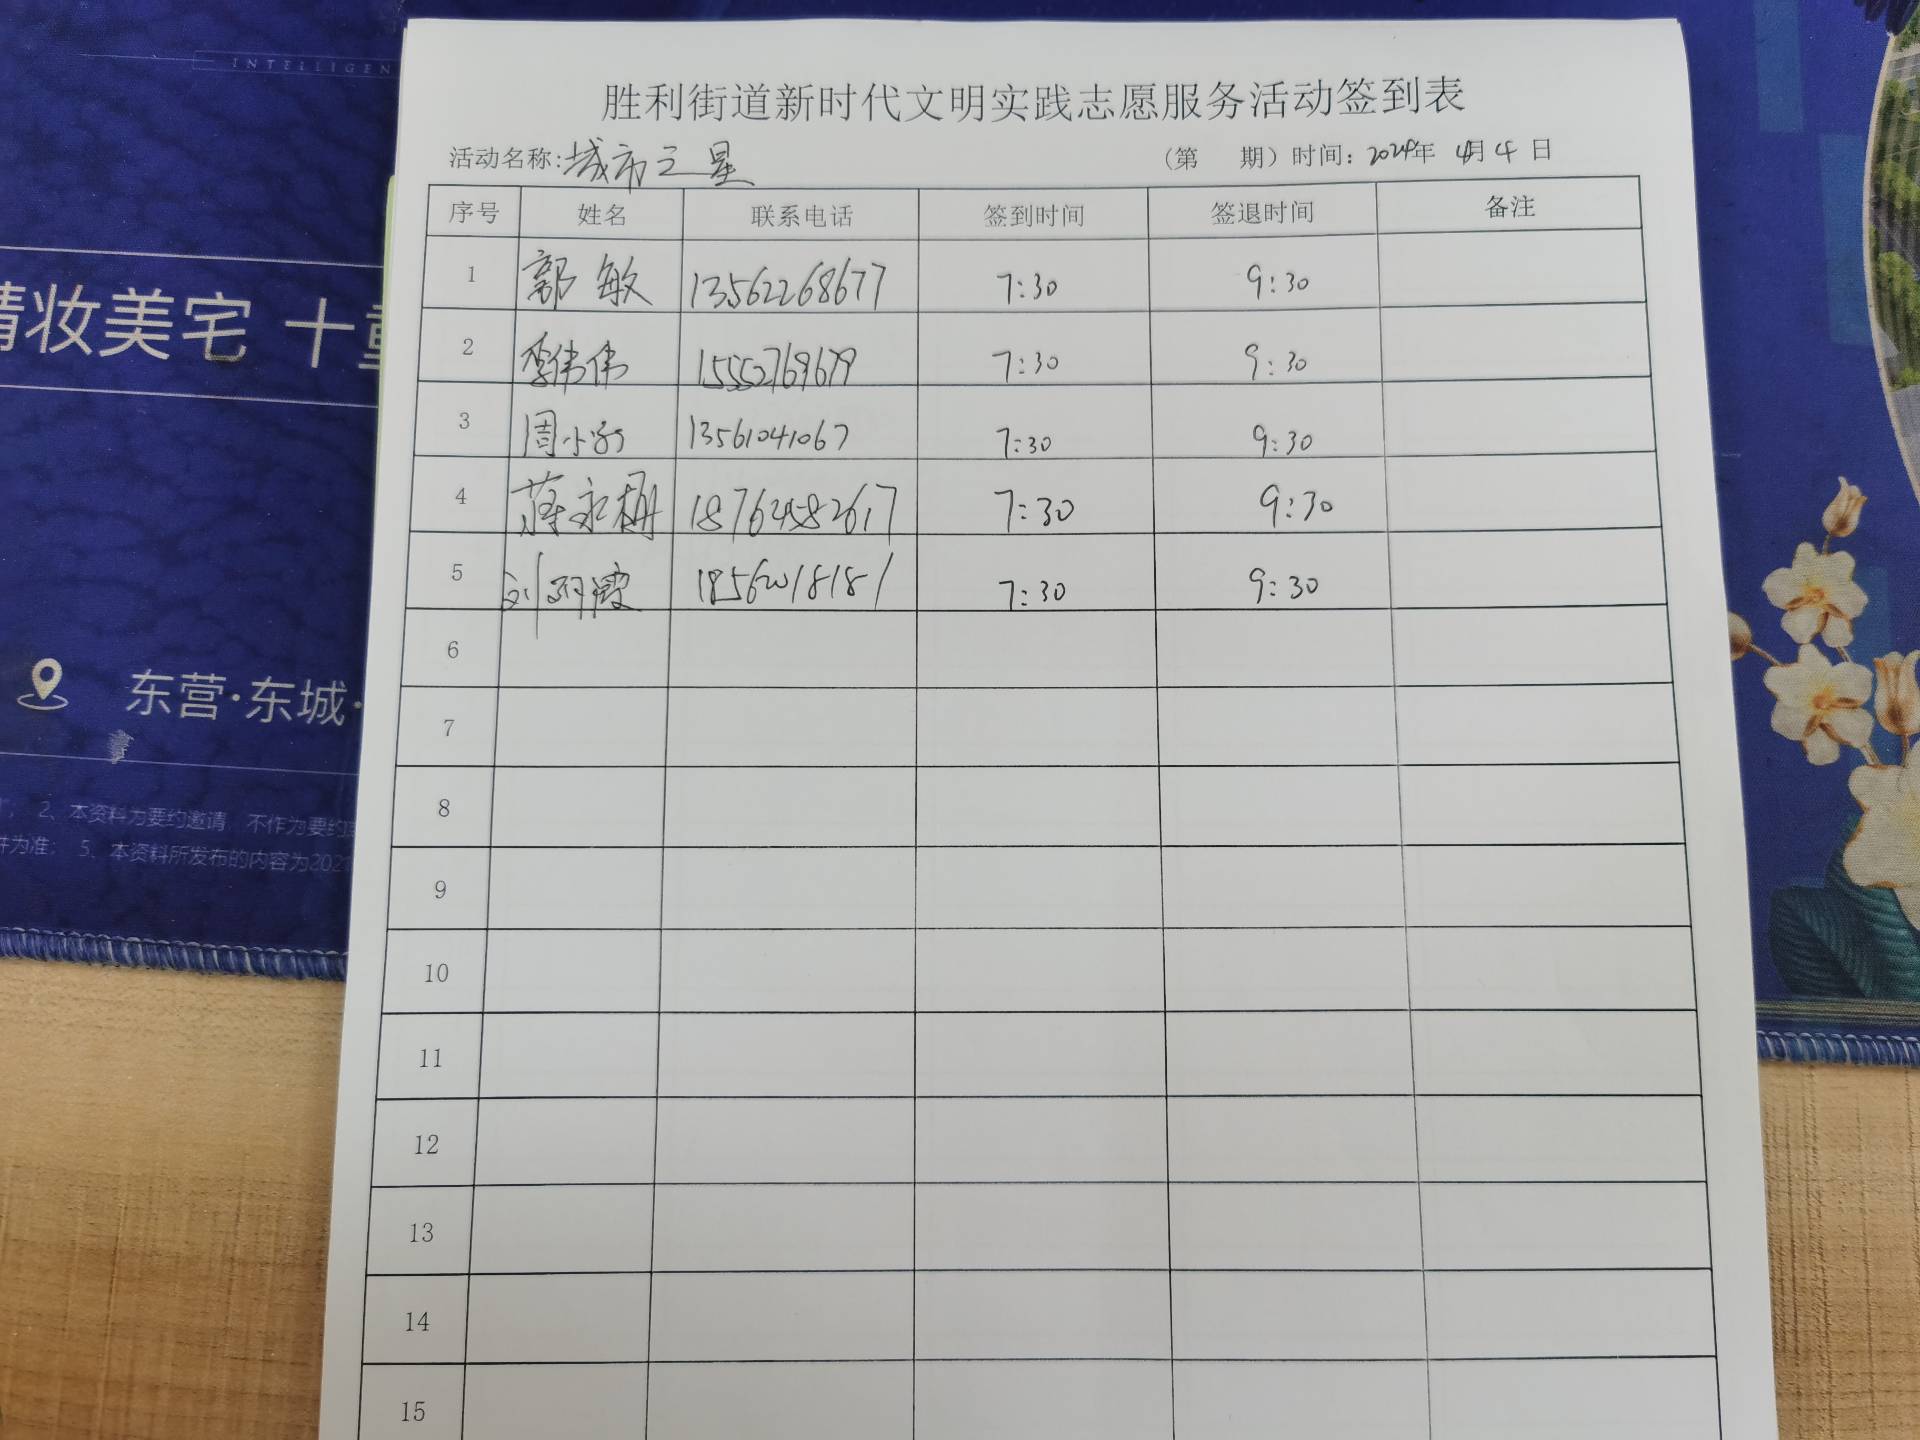 INTELLIGEN
精妆美宅 十重
东营·东城·
2、本资料为要约邀请，不作为要约
件为准； 5、本资料所发布的内容为2021
胜利街道新时代文明实践志愿服务活动签到表
活动名称:城市之星 (第 期) 时间: 2024年 4月 4 日
序号 姓名 联系电话 签到时间 签退时间 备注
1 郭敏 13562268677 7:30 9:30
2 李伟伟 15552769679 7:30 9:30
3 周小 13561041067 7:30 9:30
4 蒋永梅 18762482617 7:30 9:30
5 刘 18562018181 7:30 9:30
6
7
8
9
10
11
12
13
14
15